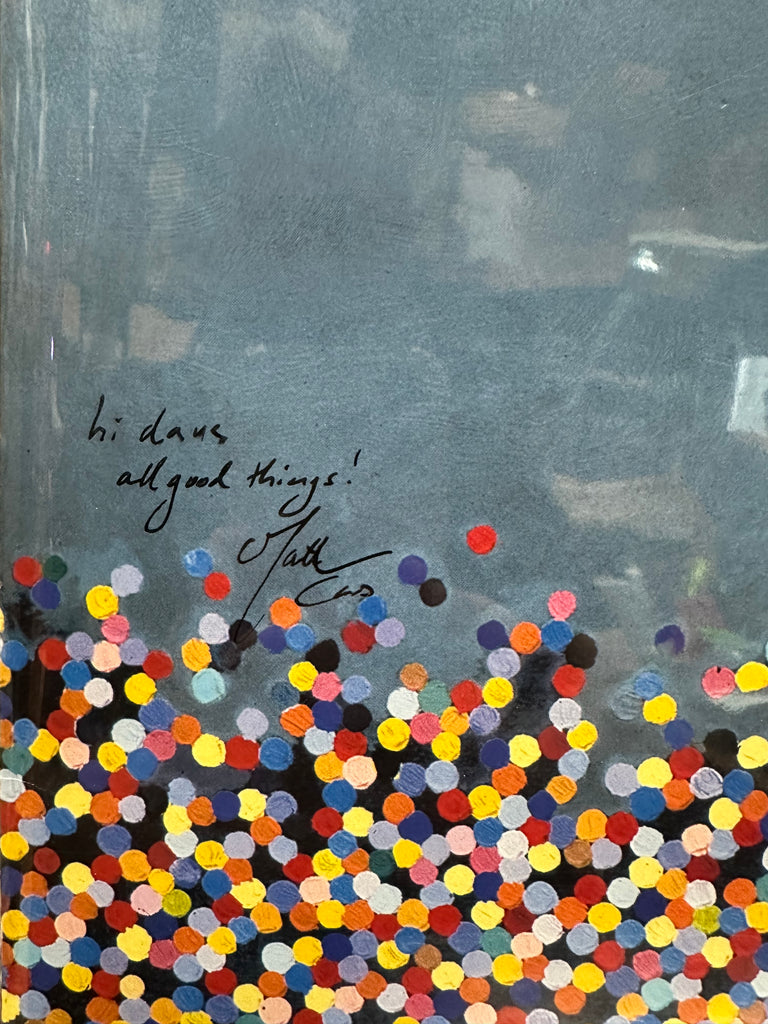 hi dave
all good things!
Matt